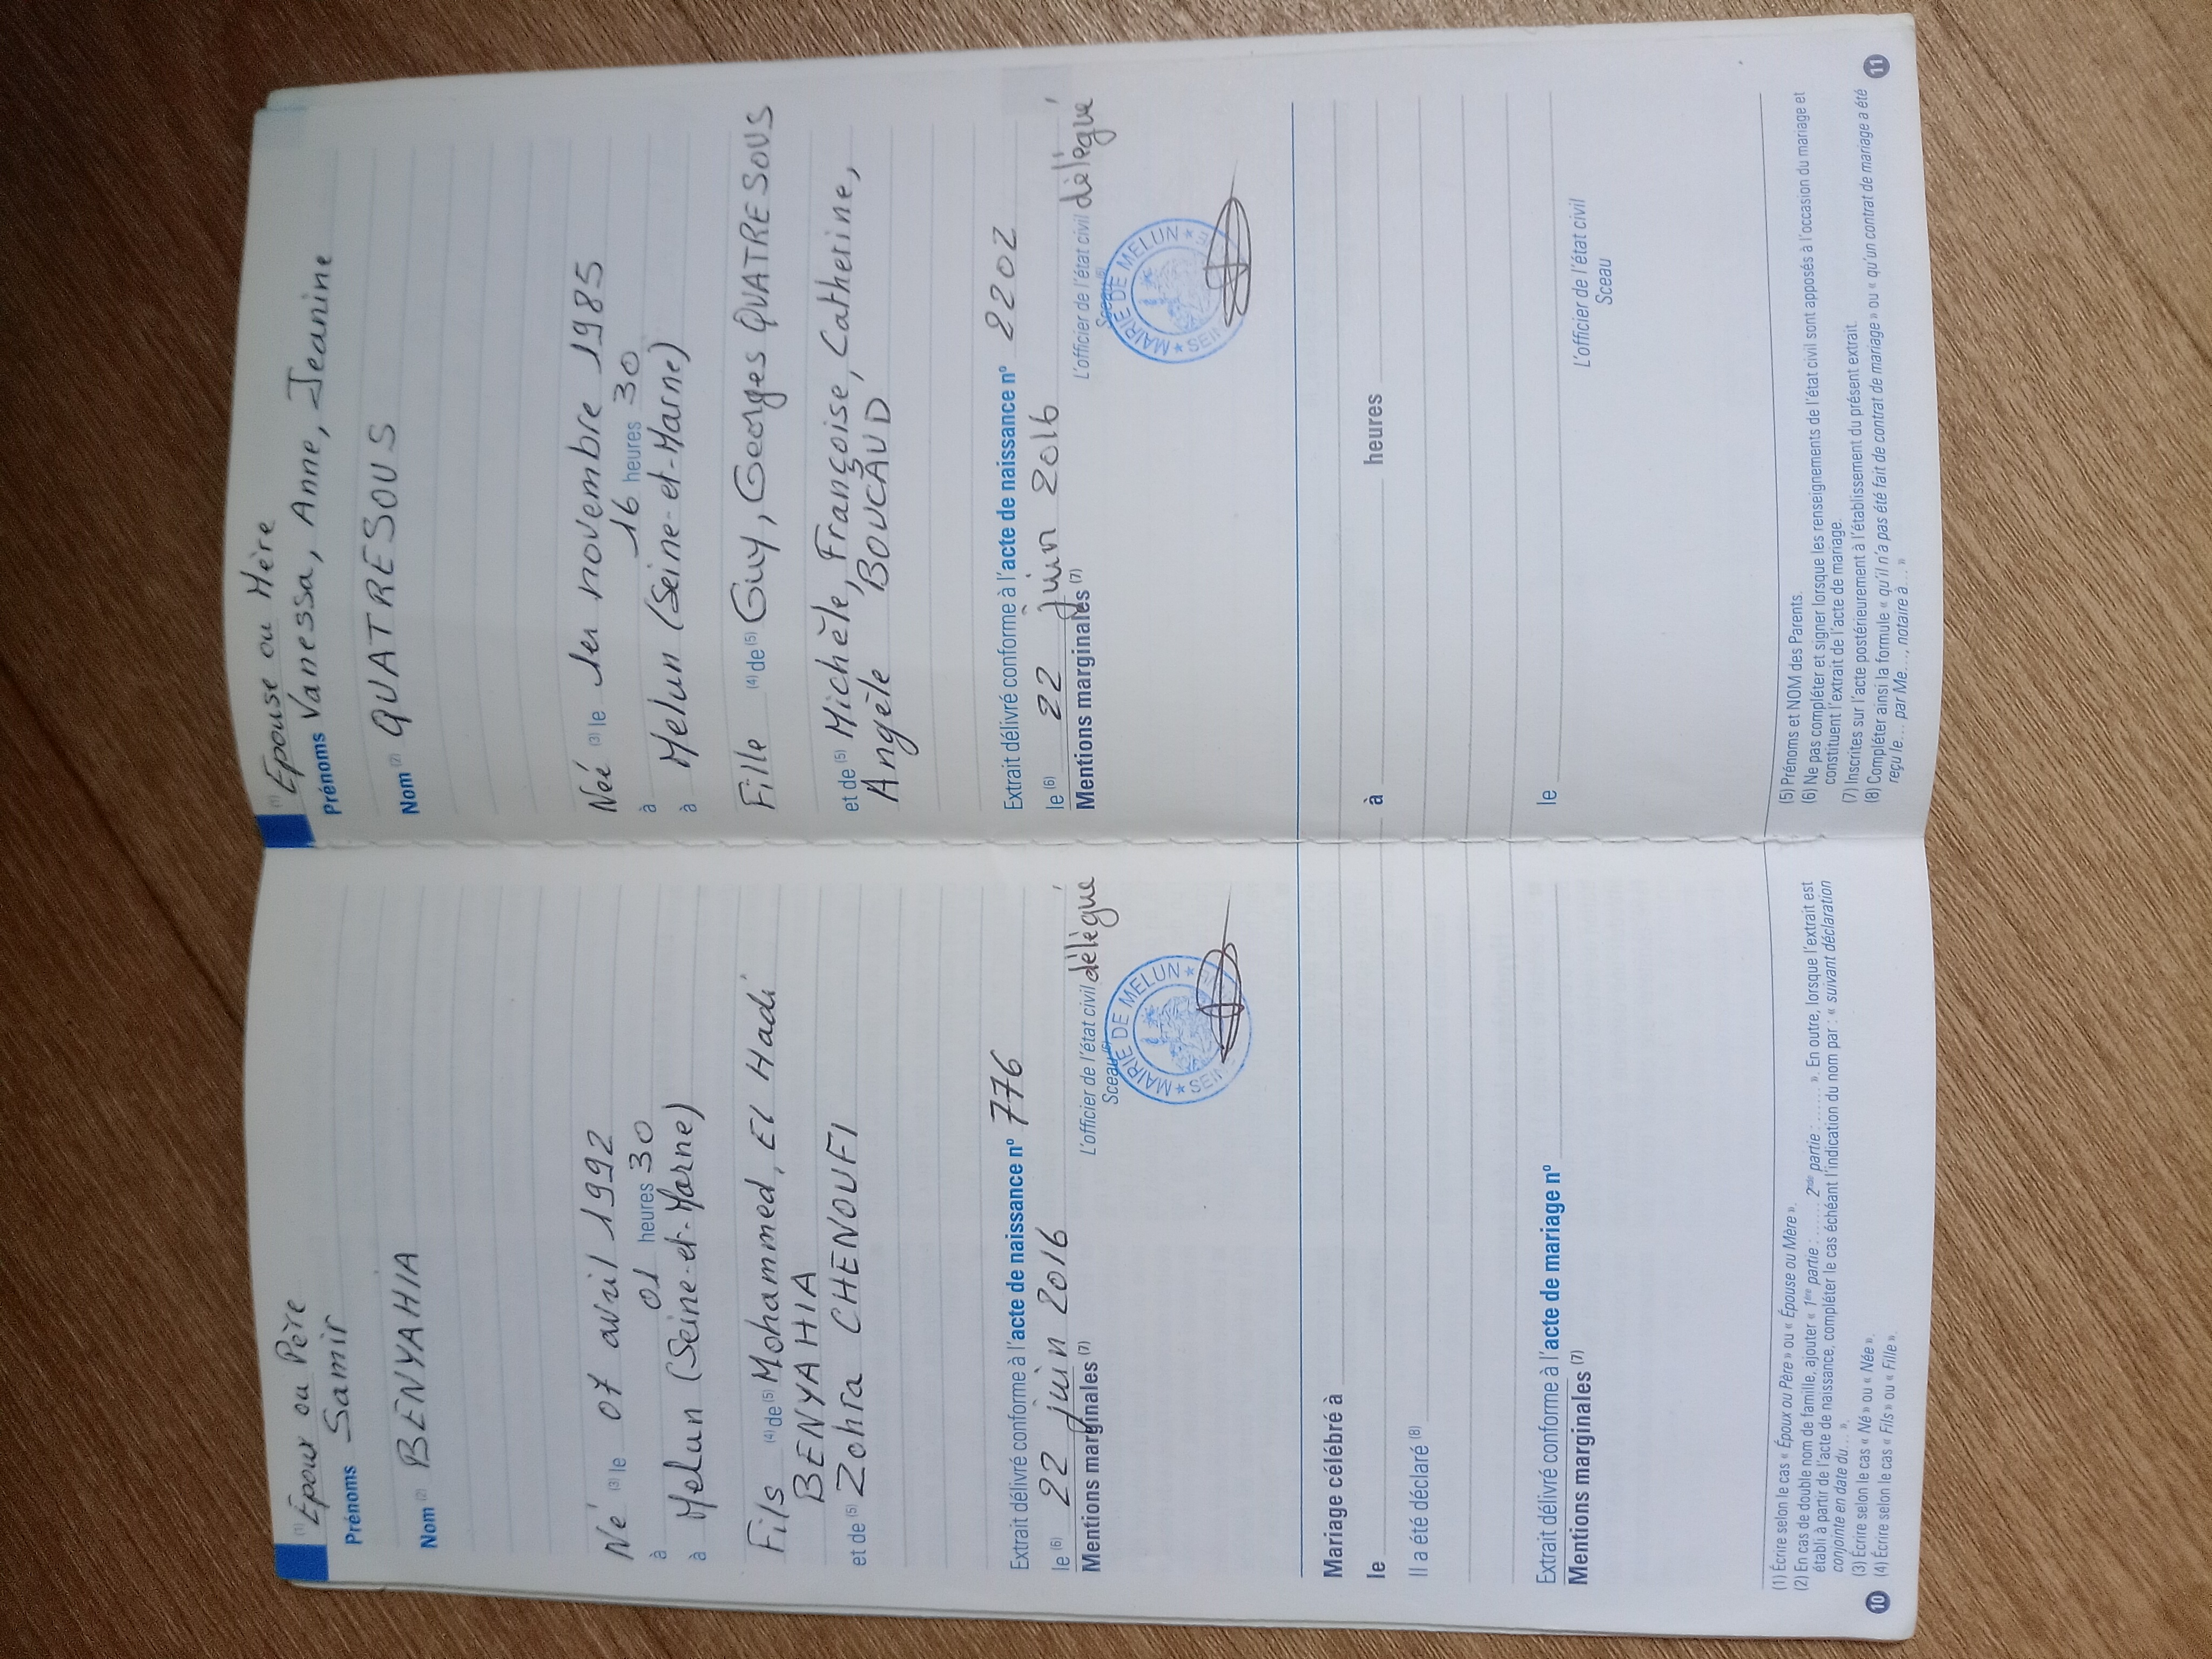 (1) Epoux ou Père
Prénoms Samir
Nom (2) BENYAHIA
Né (3) le 07 avril 1992
à 01 heures 30
à Melun (Seine-et-Marne)
Fils (4) de (5) Mohammed, El Hadi
BENYAHIA
et de (5) Zohra CHENOUFI
Extrait délivré conforme à l'acte de naissance nº 776
le (6) 22 juin 2016
Mentions marginales (7)
L'officier de l'état civil délégué
Sceau (6)
MAIRIE DE MELUN
Mariage célébré à
le
Il a été déclaré (8)
Extrait délivré conforme à l'acte de mariage nº
Mentions marginales (7)
(1) Écrire selon le cas « Époux ou Père » ou « Épouse ou Mère ».
(2) En cas de double nom de famille, ajouter « 1ère partie : ....... 2nde partie : ....... ». En outre, lorsque l'extrait est
établi à partir de l'acte de naissance, compléter le cas échéant l'indication du nom par : « suivant déclaration
conjointe en date du... ».
(3) Écrire selon le cas « Né » ou « Née ».
(4) Écrire selon le cas « Fils » ou « Fille ».
10
(1) Epouse ou Mère
Prénoms Vanessa, Anne, Jeanine
Nom (2) QUATRESOUS
Née (3) le 1er novembre 1985
à 16 heures 30
à Melun (Seine-et-Marne)
Fille (4) de (5) Guy, Georges QUATRESOUS
et de (5) Michèle, Françoise, Catherine,
Angèle BOUCAUD
Extrait délivré conforme à l'acte de naissance nº 2202
le (6) 22 juin 2016
Mentions marginales (7)
L'officier de l'état civil délégué
Sceau (6)
MAIRIE DE MELUN
à heures
le
L'officier de l'état civil
Sceau
(5) Prénoms et NOM des Parents.
(6) Ne pas compléter et signer lorsque les renseignements de l'état civil sont apposés à l'occasion du mariage et
constituent l'extrait de l'acte de mariage.
(7) Inscrites sur l'acte postérieurement à l'établissement du présent extrait.
(8) Compléter ainsi la formule « qu'il n'a pas été fait de contrat de mariage » ou « qu'un contrat de mariage a été
reçu le... par Me..., notaire à... »
11